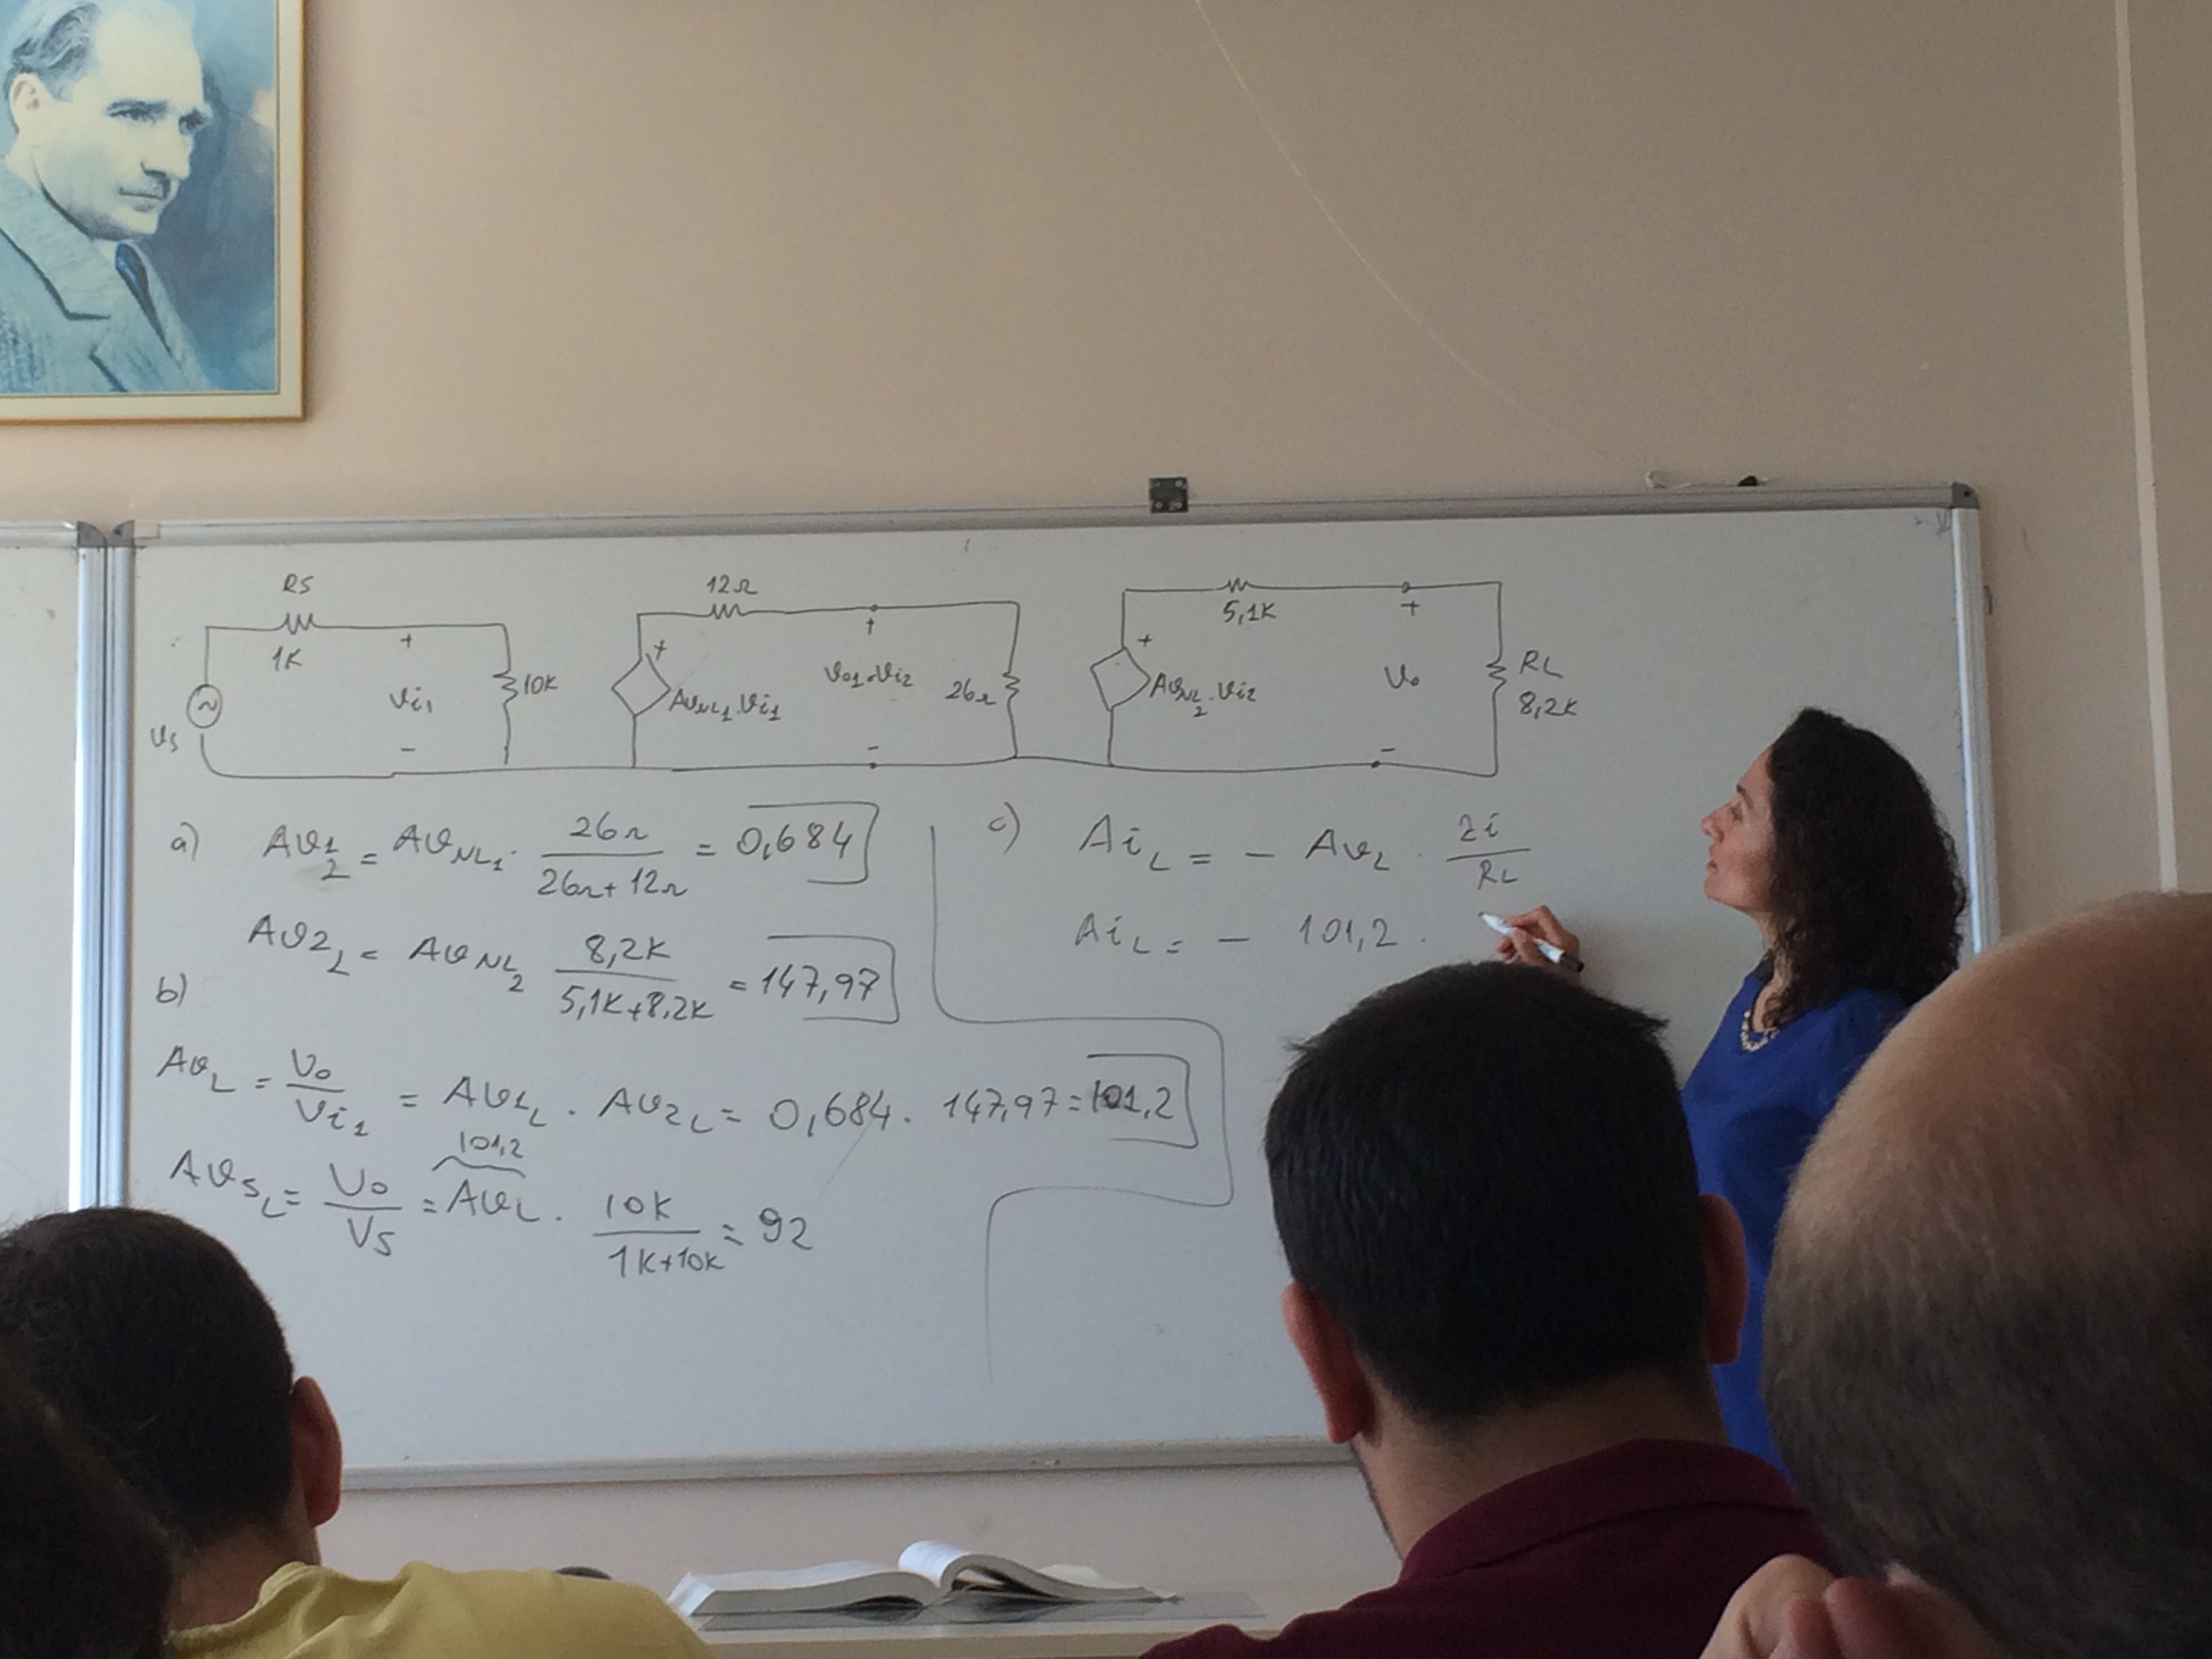 RS
1K
Vs
+
Vi₁
-
10K
12Ω
+
AϑNL1.Vi1
+
ϑo1=Vi2
-
26Ω
5,1K
+
AϑNL2.Vi2
+
Vo
-
RL
8,2K
a) Aϑ1L = AϑNL1. 26Ω / (26Ω+12Ω) = 0,684
Aϑ2L = AϑNL2 8,2K / (5,1K+8,2K) = 147,97
b)
AϑL = Vo / Vi1 = Aϑ1L . Aϑ2L = 0,684. 147,97 = 101,2
101,2
AϑSL = Vo / Vs = AϑL . 10K / (1K+10K) = 92
c) AiL = - AϑL . Zi / RL
AiL = - 101,2 .